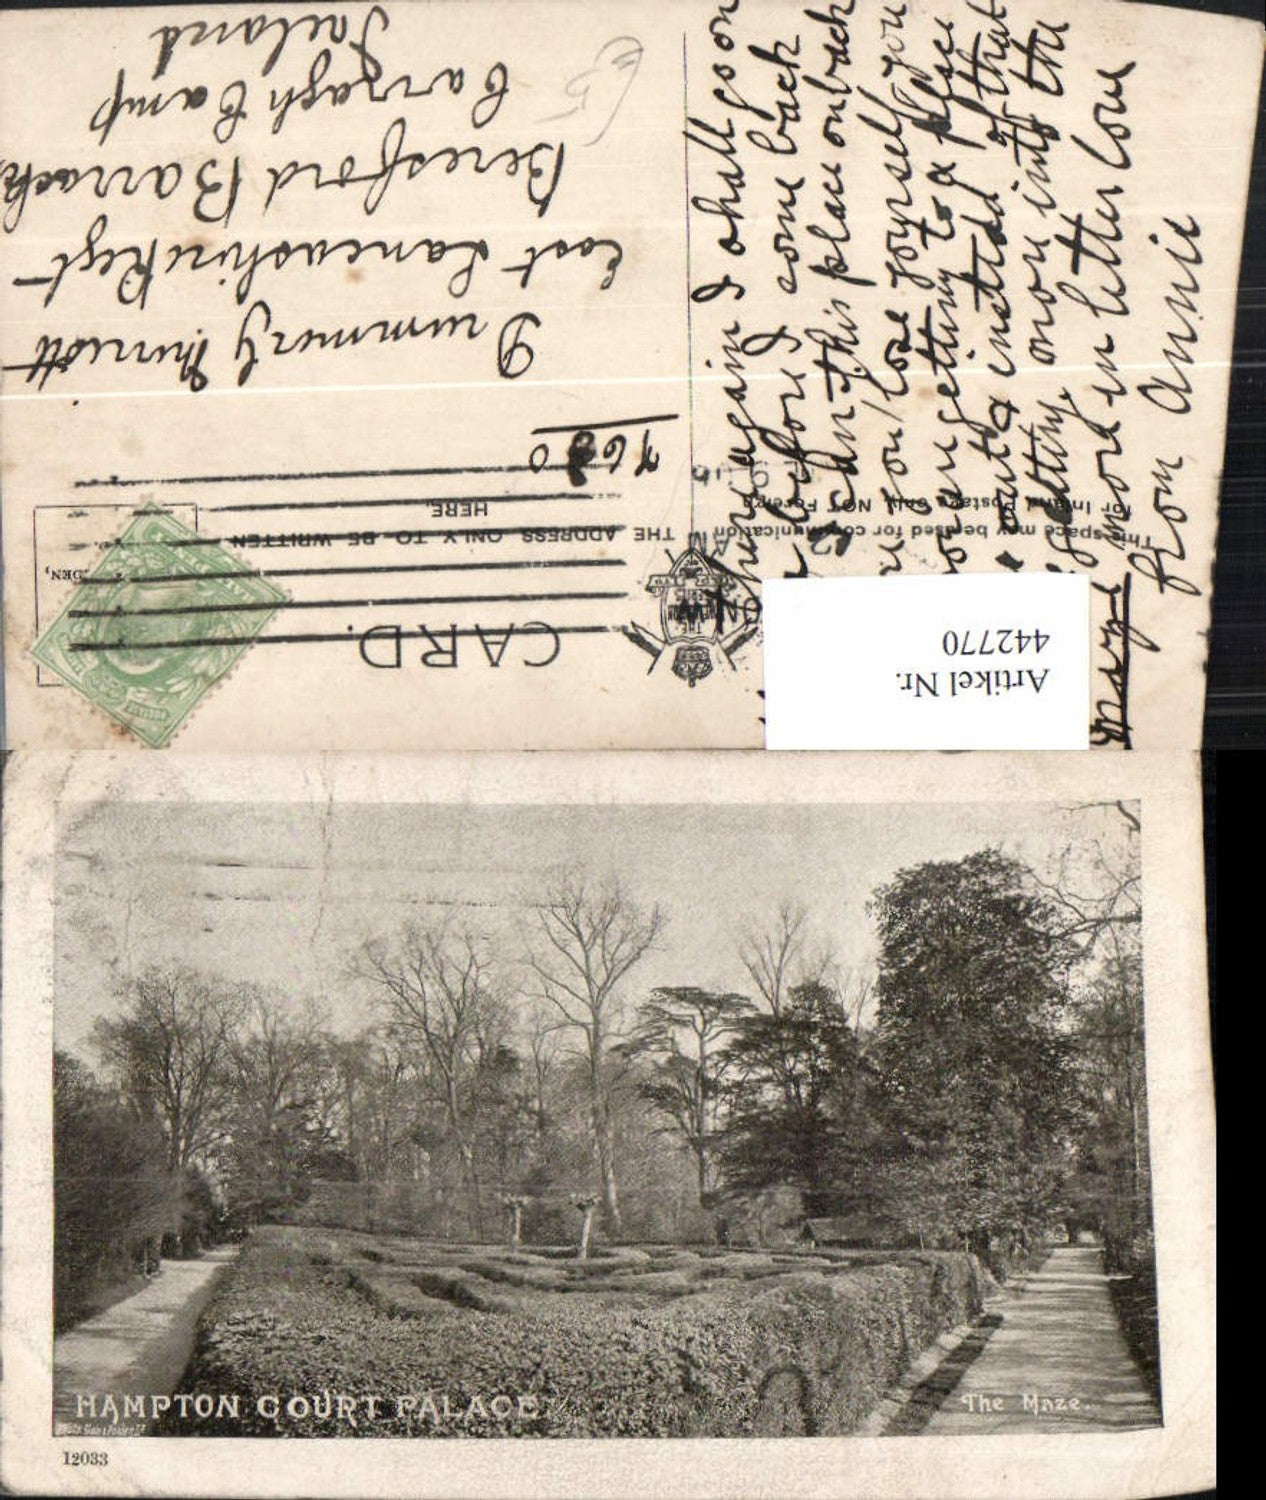 CARD.
THE ADDRESS ONLY TO BE WRITTEN
HERE.
This space may be used for communication
For Inland Postage only, NOT Foreign
9680
East Lancashire Regt
Beresford Barracks
Curragh Camp
Ireland
again I shall soon
before I come back
this place on back
you lose yourself you
getting to a place
out & instead of that
getting more into the
Maze more in letter love
from Annie
Artikel Nr.
442770
HAMPTON COURT PALACE
The Maze.
12033